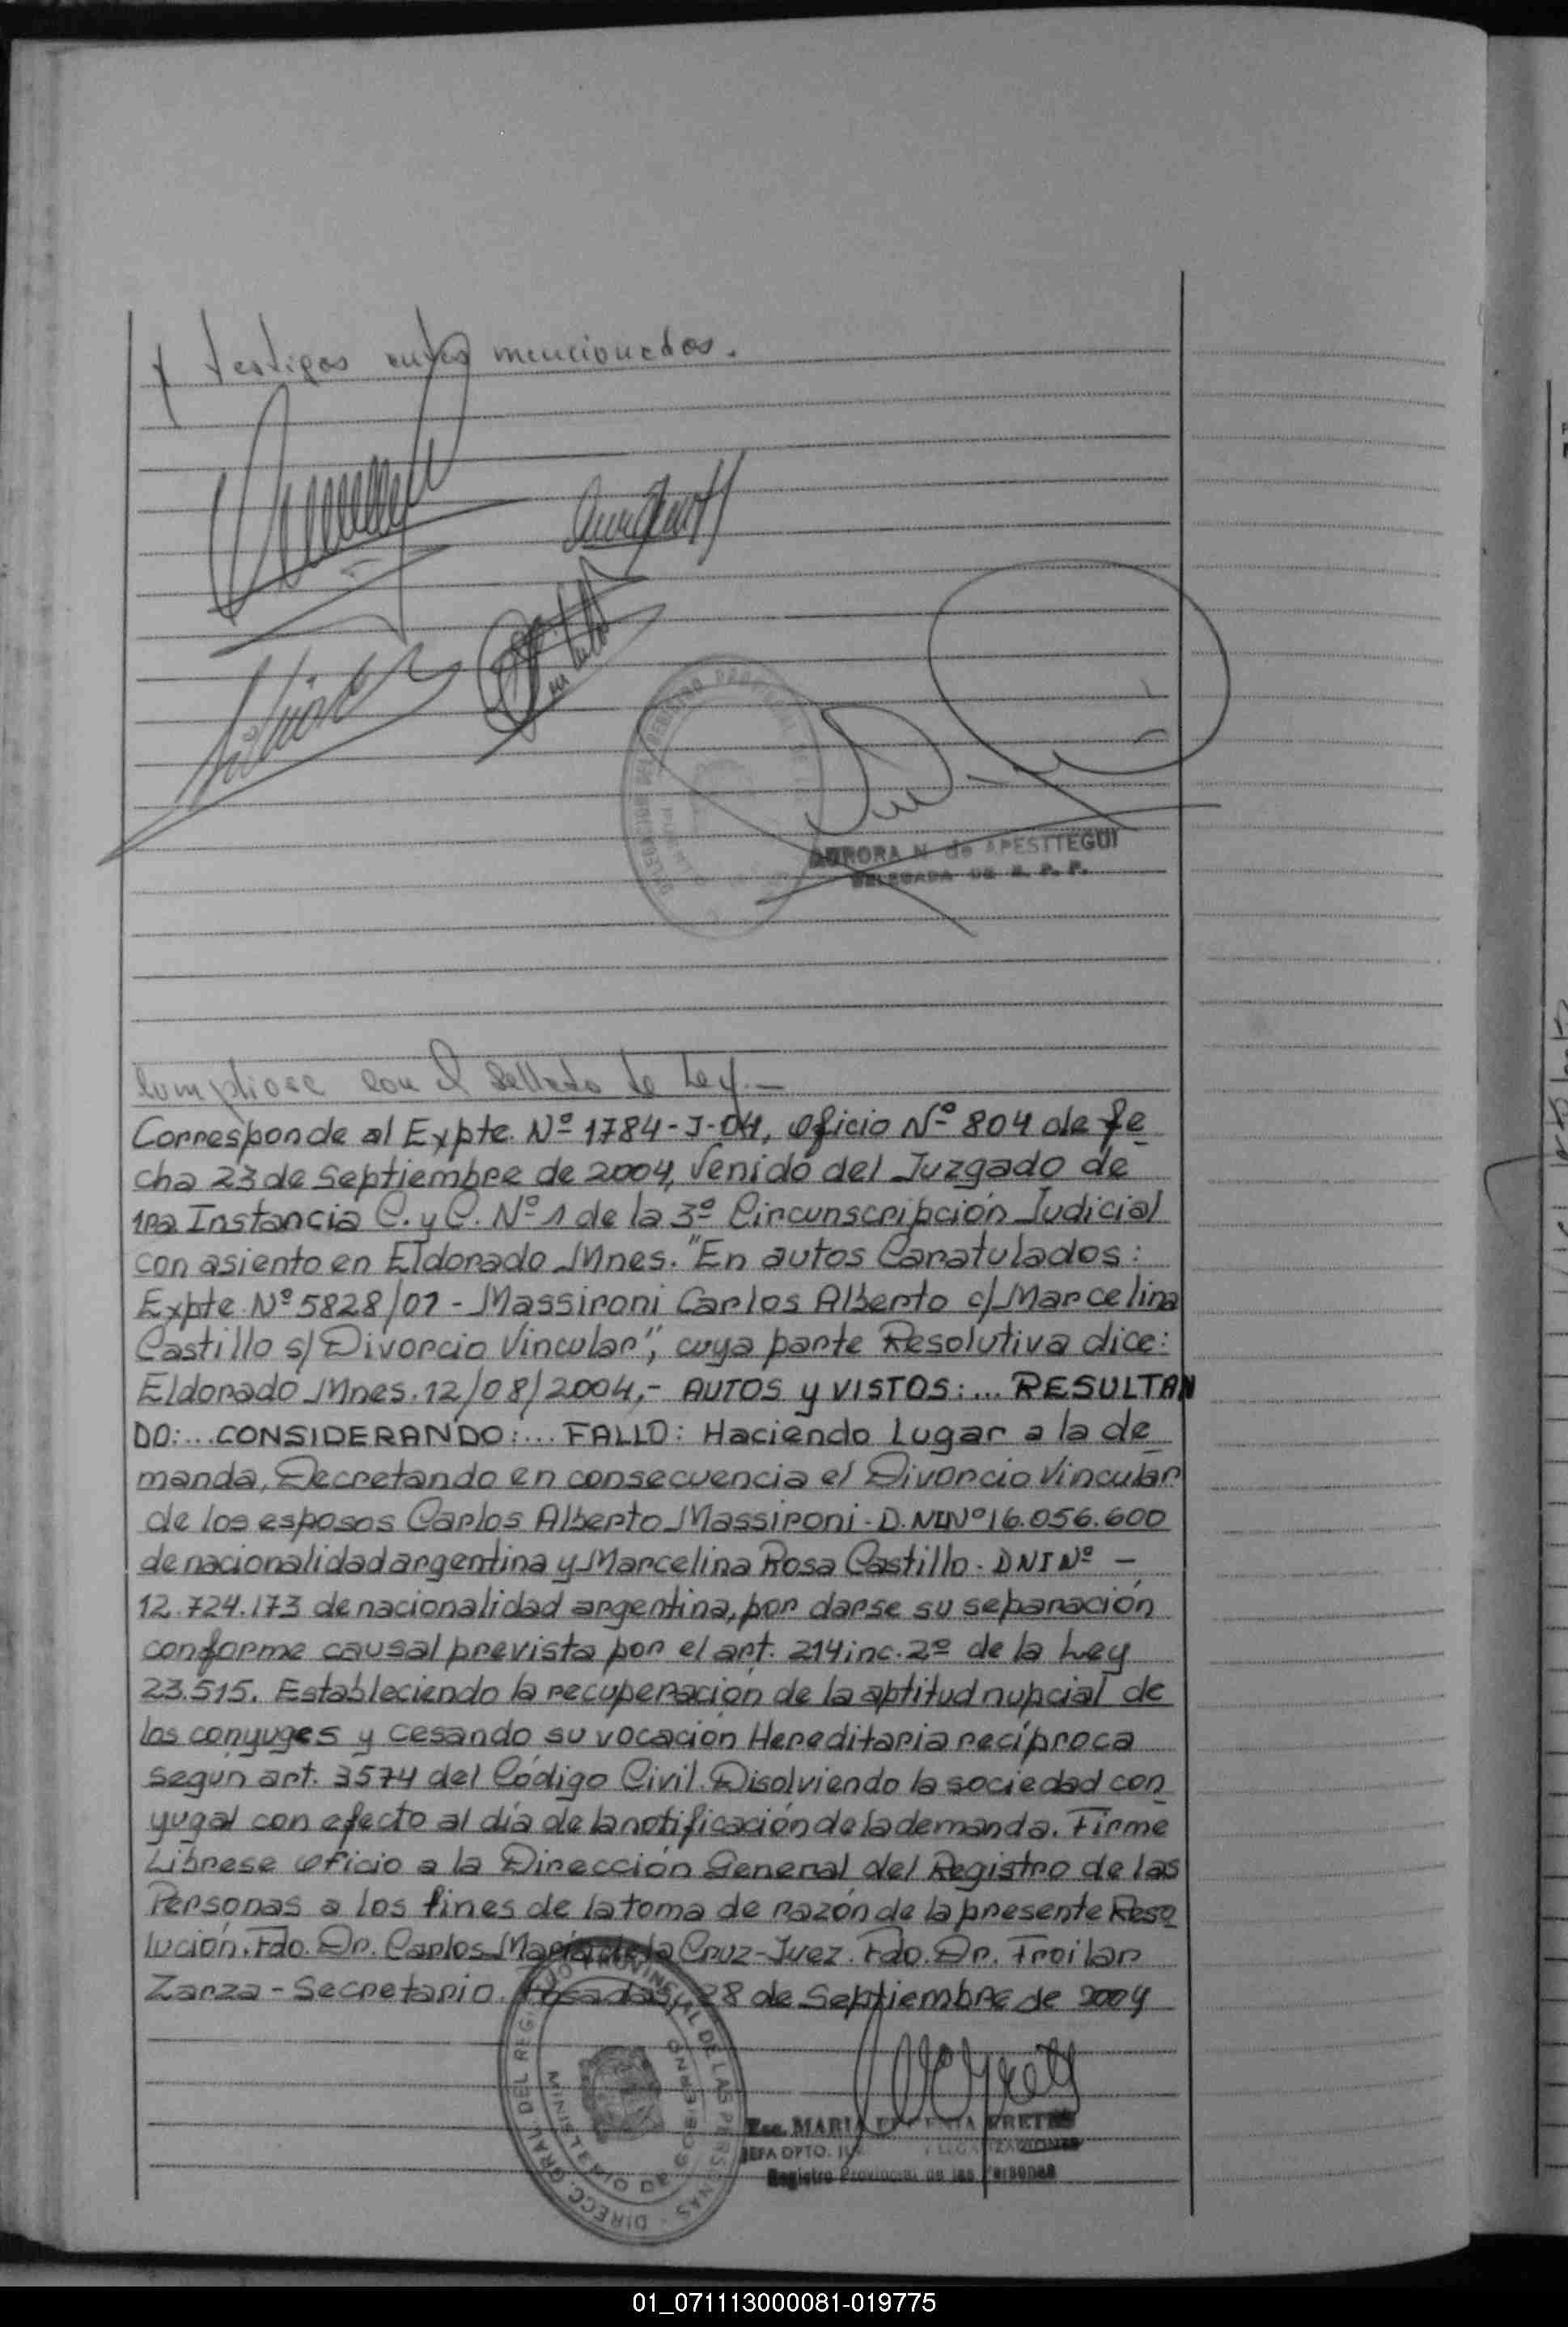 y testigos antes mencionados.
AURORA N. de APESTTEGUI
DELEGADA DE R. P. P.
Cumpliose con el Sellado de Ley.—
Corresponde al Expte. Nº 1784-J-04, Oficio Nº 804 de fe
cha 23 de Septiembre de 2004, Venido del Juzgado de
1ra Instancia C. y C. Nº 1 de la 3º Circunscripción Judicial
con asiento en Eldorado Mnes. "En autos Caratulados:
Expte. Nº 5828/01 - Massironi Carlos Alberto c/ Marcelina
Castillo s/ Divorcio Vincular", cuya parte Resolutiva dice:
Eldorado Mnes. 12/08/2004,- AUTOS y VISTOS:... RESULTAN
DO:... CONSIDERANDO:... FALLO: Haciendo Lugar a la de
manda, Decretando en consecuencia el Divorcio Vincular
de los esposos Carlos Alberto Massironi - D.NI Nº 16.056.600
de nacionalidad argentina y Marcelina Rosa Castillo - DNI Nº -
12.724.173 de nacionalidad argentina, por darse su separación
conforme causal prevista por el art. 214 inc. 2º de la Ley
23.515. Estableciendo la recuperación de la aptitud nupcial de
los conyuges y cesando su vocación Hereditaria recíproca
segun art. 3574 del Código Civil. Disolviendo la sociedad con
yugal con efecto al día de la notificación de la demanda. Firme
Librese oficio a la Dirección General del Registro de las
Personas a los fines de la toma de razón de la presente Reso
lución. Fdo. Dr. Carlos María de la Cruz - Juez. Fdo. Dr. Froilan
Zarza - Secretario. Posadas, 28 de Septiembre de 2004
DIRECC. GRAL. DEL REGISTRO PROVINCIAL DE LAS PERSONAS
MINISTERIO DE GOBIERNO
Esc. MARIA
JEFA DPTO.
Registro Provincial de las Personas
01_071113000081-019775